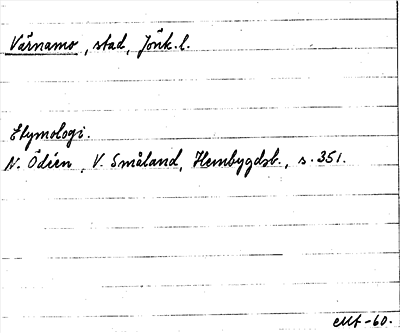 Värnamo, stad, Jönk. l.
Etymologi.
N. Ödeen, V. Småland, Hembygdsb., s. 351.
-60.